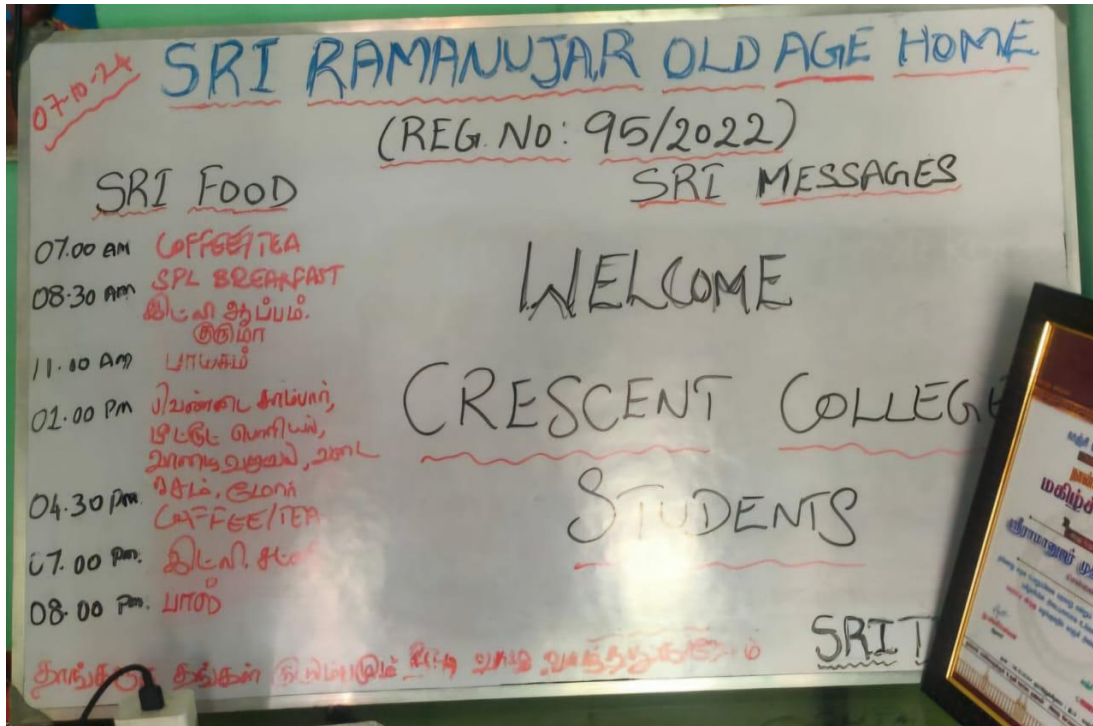 07-10-24
SRI RAMANUJAR OLD AGE HOME
(REG. NO: 95/2022)
SRI FOOD
07.00 AM COFFEE/TEA
08.30 AM SPL BREAKFAST
இட்லி ஆப்பம்.
குருமா
11.00 AM பாயசம்
01.00 PM வெண்டை சாம்பார்,
பீட்ரூட் பொரியல்,
வடை
ரசம், மோர்
04.30 PM. COFFEE/TEA
07.00 PM. இட்லி.
08.00 PM. பால்
SRI MESSAGES
WELCOME
CRESCENT COLLEGE
STUDENTS
SRI T
தங்கள்